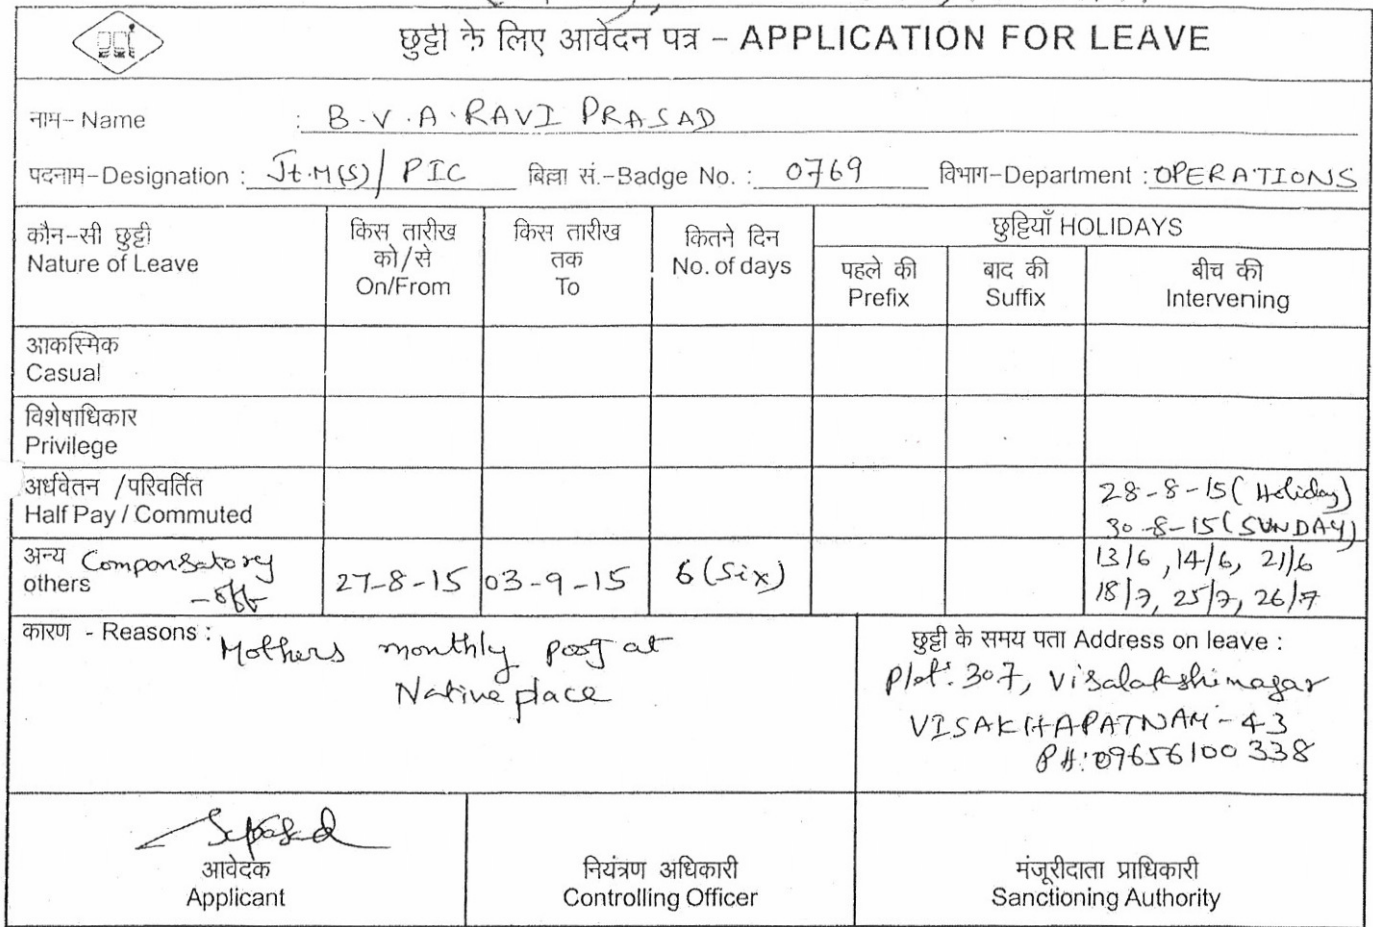 छुट्टी के लिए आवेदन पत्र – APPLICATION FOR LEAVE
नाम– Name : B.V.A.RAVI PRASAD
पदनाम–Designation : Jt.M(S)/ PIC बिल्ला सं.–Badge No. : 0769 विभाग–Department : OPERATIONS
कौन–सी छुट्टी
Nature of Leave
किस तारीख
को/से
On/From
किस तारीख
तक
To
कितने दिन
No. of days
छुट्टियाँ HOLIDAYS
पहले की
Prefix
बाद की
Suffix
बीच की
Intervening
आकस्मिक
Casual
विशेषाधिकार
Privilege
अर्धवेतन /परिवर्तित
Half Pay / Commuted
28-8-15 (Holiday)
30-8-15 (SUNDAY)
अन्य Componsatory
others -off
27-8-15
03-9-15
6 (Six)
13/6, 14/6, 21/6
18/7, 25/7, 26/7
कारण - Reasons : Mothers monthly at
Native place
छुट्टी के समय पता Address on leave :
Plot: 307, Visalakshinagar
VISAKHAPATNAM - 43
PH: 09656100338
आवेदक
Applicant
नियंत्रण अधिकारी
Controlling Officer
मंजूरीदाता प्राधिकारी
Sanctioning Authority